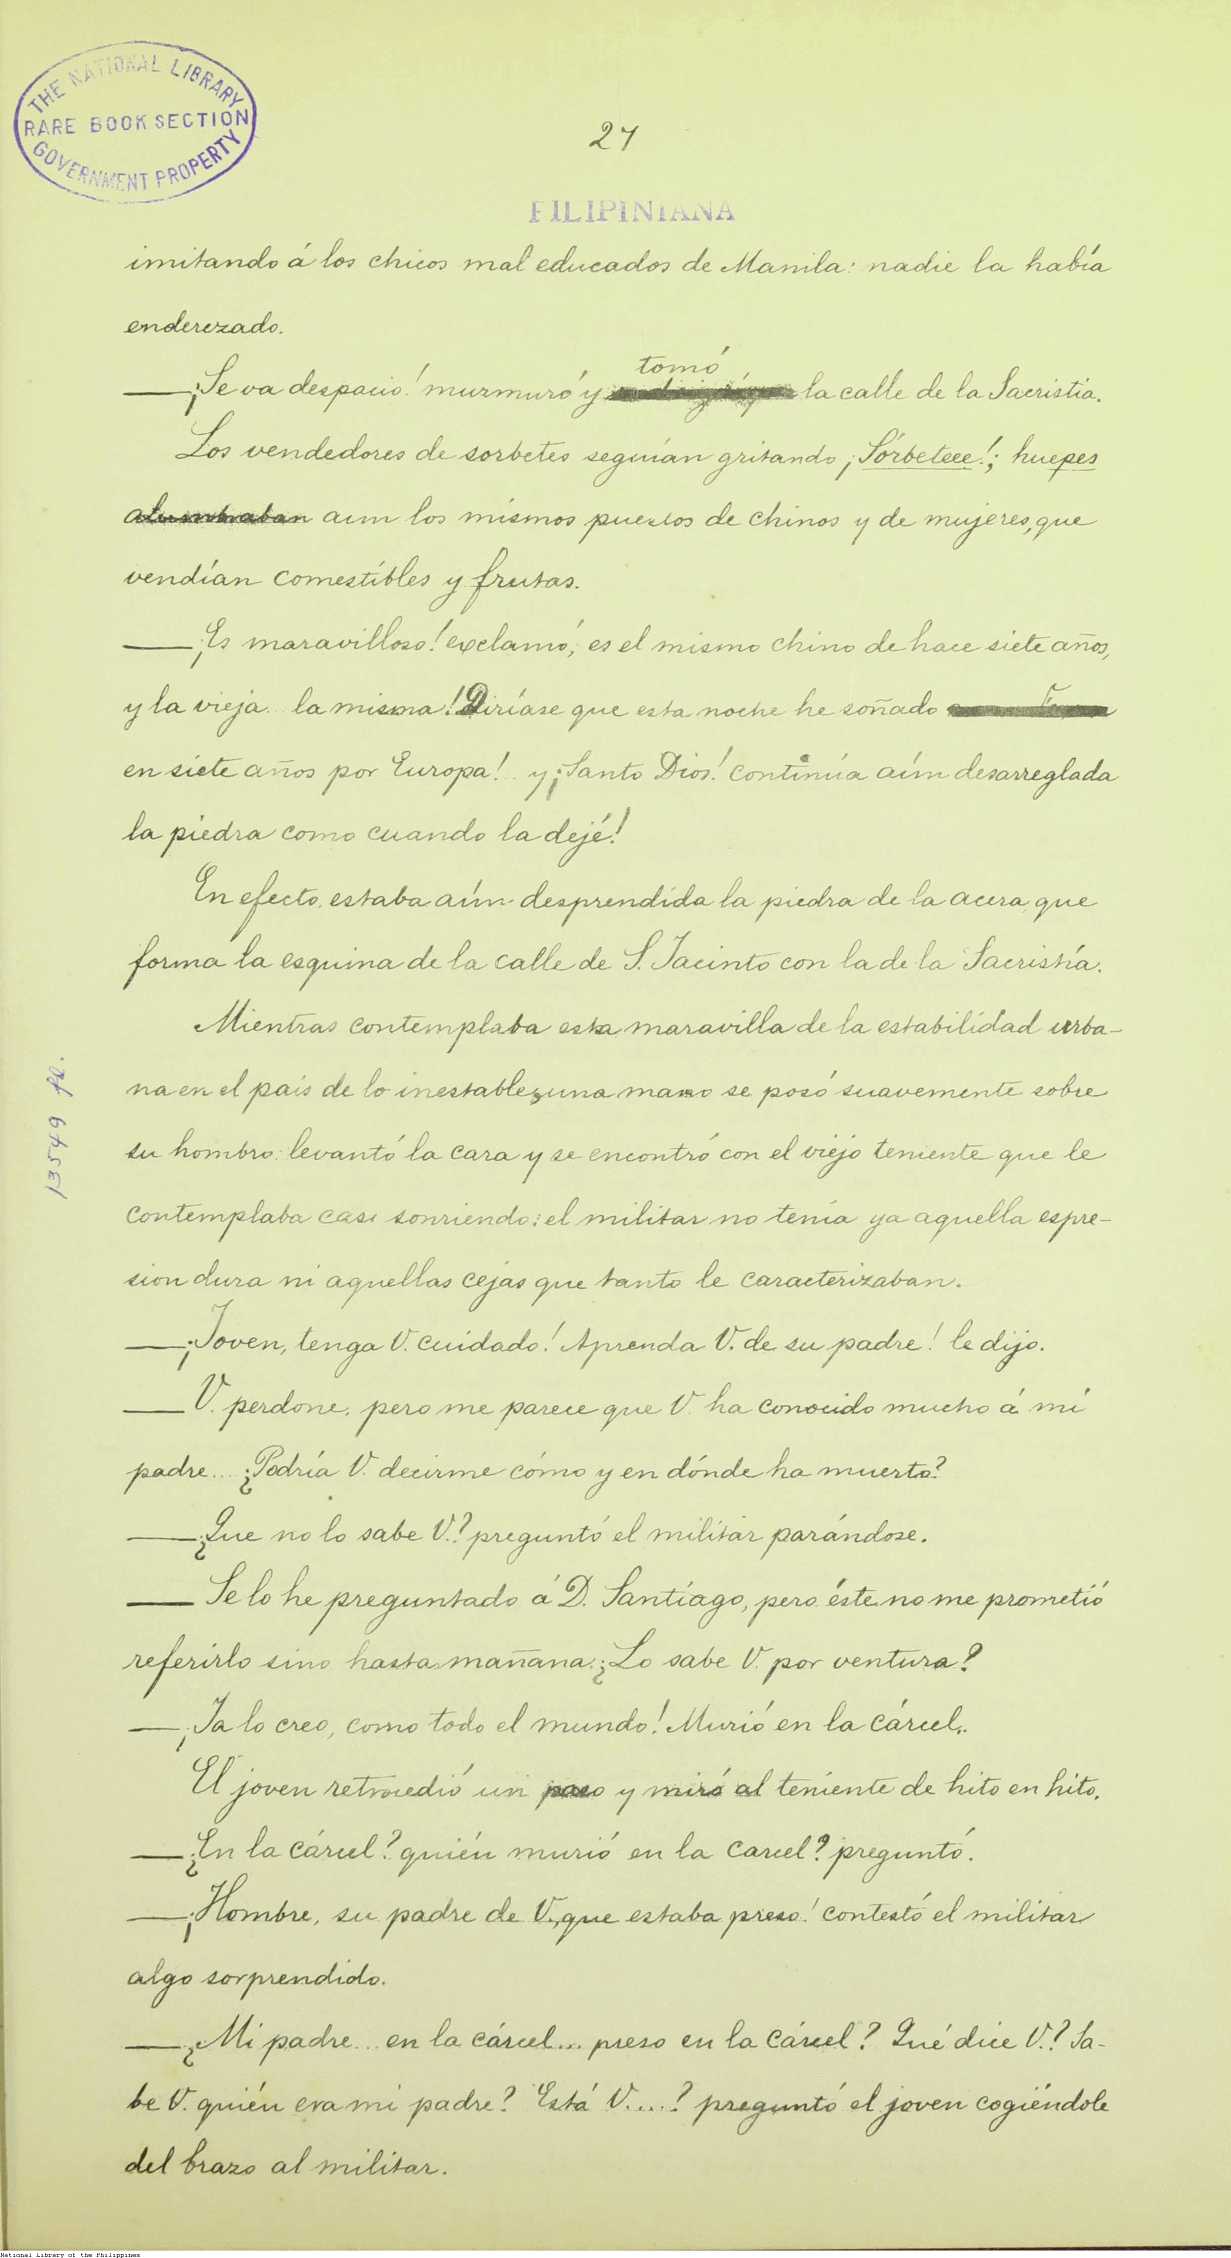 THE NATIONAL LIBRARY
RARE BOOK SECTION
GOVERNMENT PROPERTY
27
FILIPINIANA
imitando á los chicos mal educados de Manila: nadie la había
enderezado.
—¡Se va despacio! murmuró y tomó la calle de la Sacristia.
Los vendedores de sorbetes seguían gritando ¡Sórbeteee!; huepes
alumbraban aun los mismos puestos de chinos y de mujeres, que
vendían comestibles y frutas.
—¡Es maravilloso! exclamó; es el mismo chino de hace siete años,
y la vieja.. la misma! Diríase que esta noche he soñado
en siete años por Europa!.. y ¡Santo Dios! continúa aún desarreglada
la piedra como cuando la dejé!
En efecto, estaba aún desprendida la piedra de la acera, que
forma la esquina de la calle de S. Jacinto con la de la Sacristía.
Mientras contemplaba esta maravilla de la estabilidad urba-
na en el pais de lo inestable, una mano se posó suavemente sobre
su hombro: levantó la cara y se encontró con el viejo teniente que le
contemplaba casi sonriendo: el militar no tenía ya aquella espre-
sion dura ni aquellas cejas que tanto le caracterizaban.
—¡Joven, tenga V. cuidado! Aprenda V. de su padre! le dijo.
—V. perdone; pero me parece que V. ha conocido mucho á mi
padre... ¿Podría V. decirme cómo y en dónde ha muerto?
—¿Que no lo sabe V.? preguntó el militar parándose.
—Se lo he preguntado á D. Santiago, pero éste no me prometió
referirlo sino hasta mañana. ¿Lo sabe V. por ventura?
—¡Ya lo creo, como todo el mundo! Murió en la cárcel.
El joven retrocedió un paso y miró al teniente de hito en hito.
—¿En la cárcel? quién murió en la carcel? preguntó.
—¡Hombre, su padre de V., que estaba preso! contestó el militar
algo sorprendido.
—¿Mi padre... en la cárcel... preso en la cárcel? Qué dice V.? Sa-
be V. quién era mi padre? Está V....? preguntó el joven cogiéndole
del brazo al militar.
13549 fl.
National Library of the Philippines